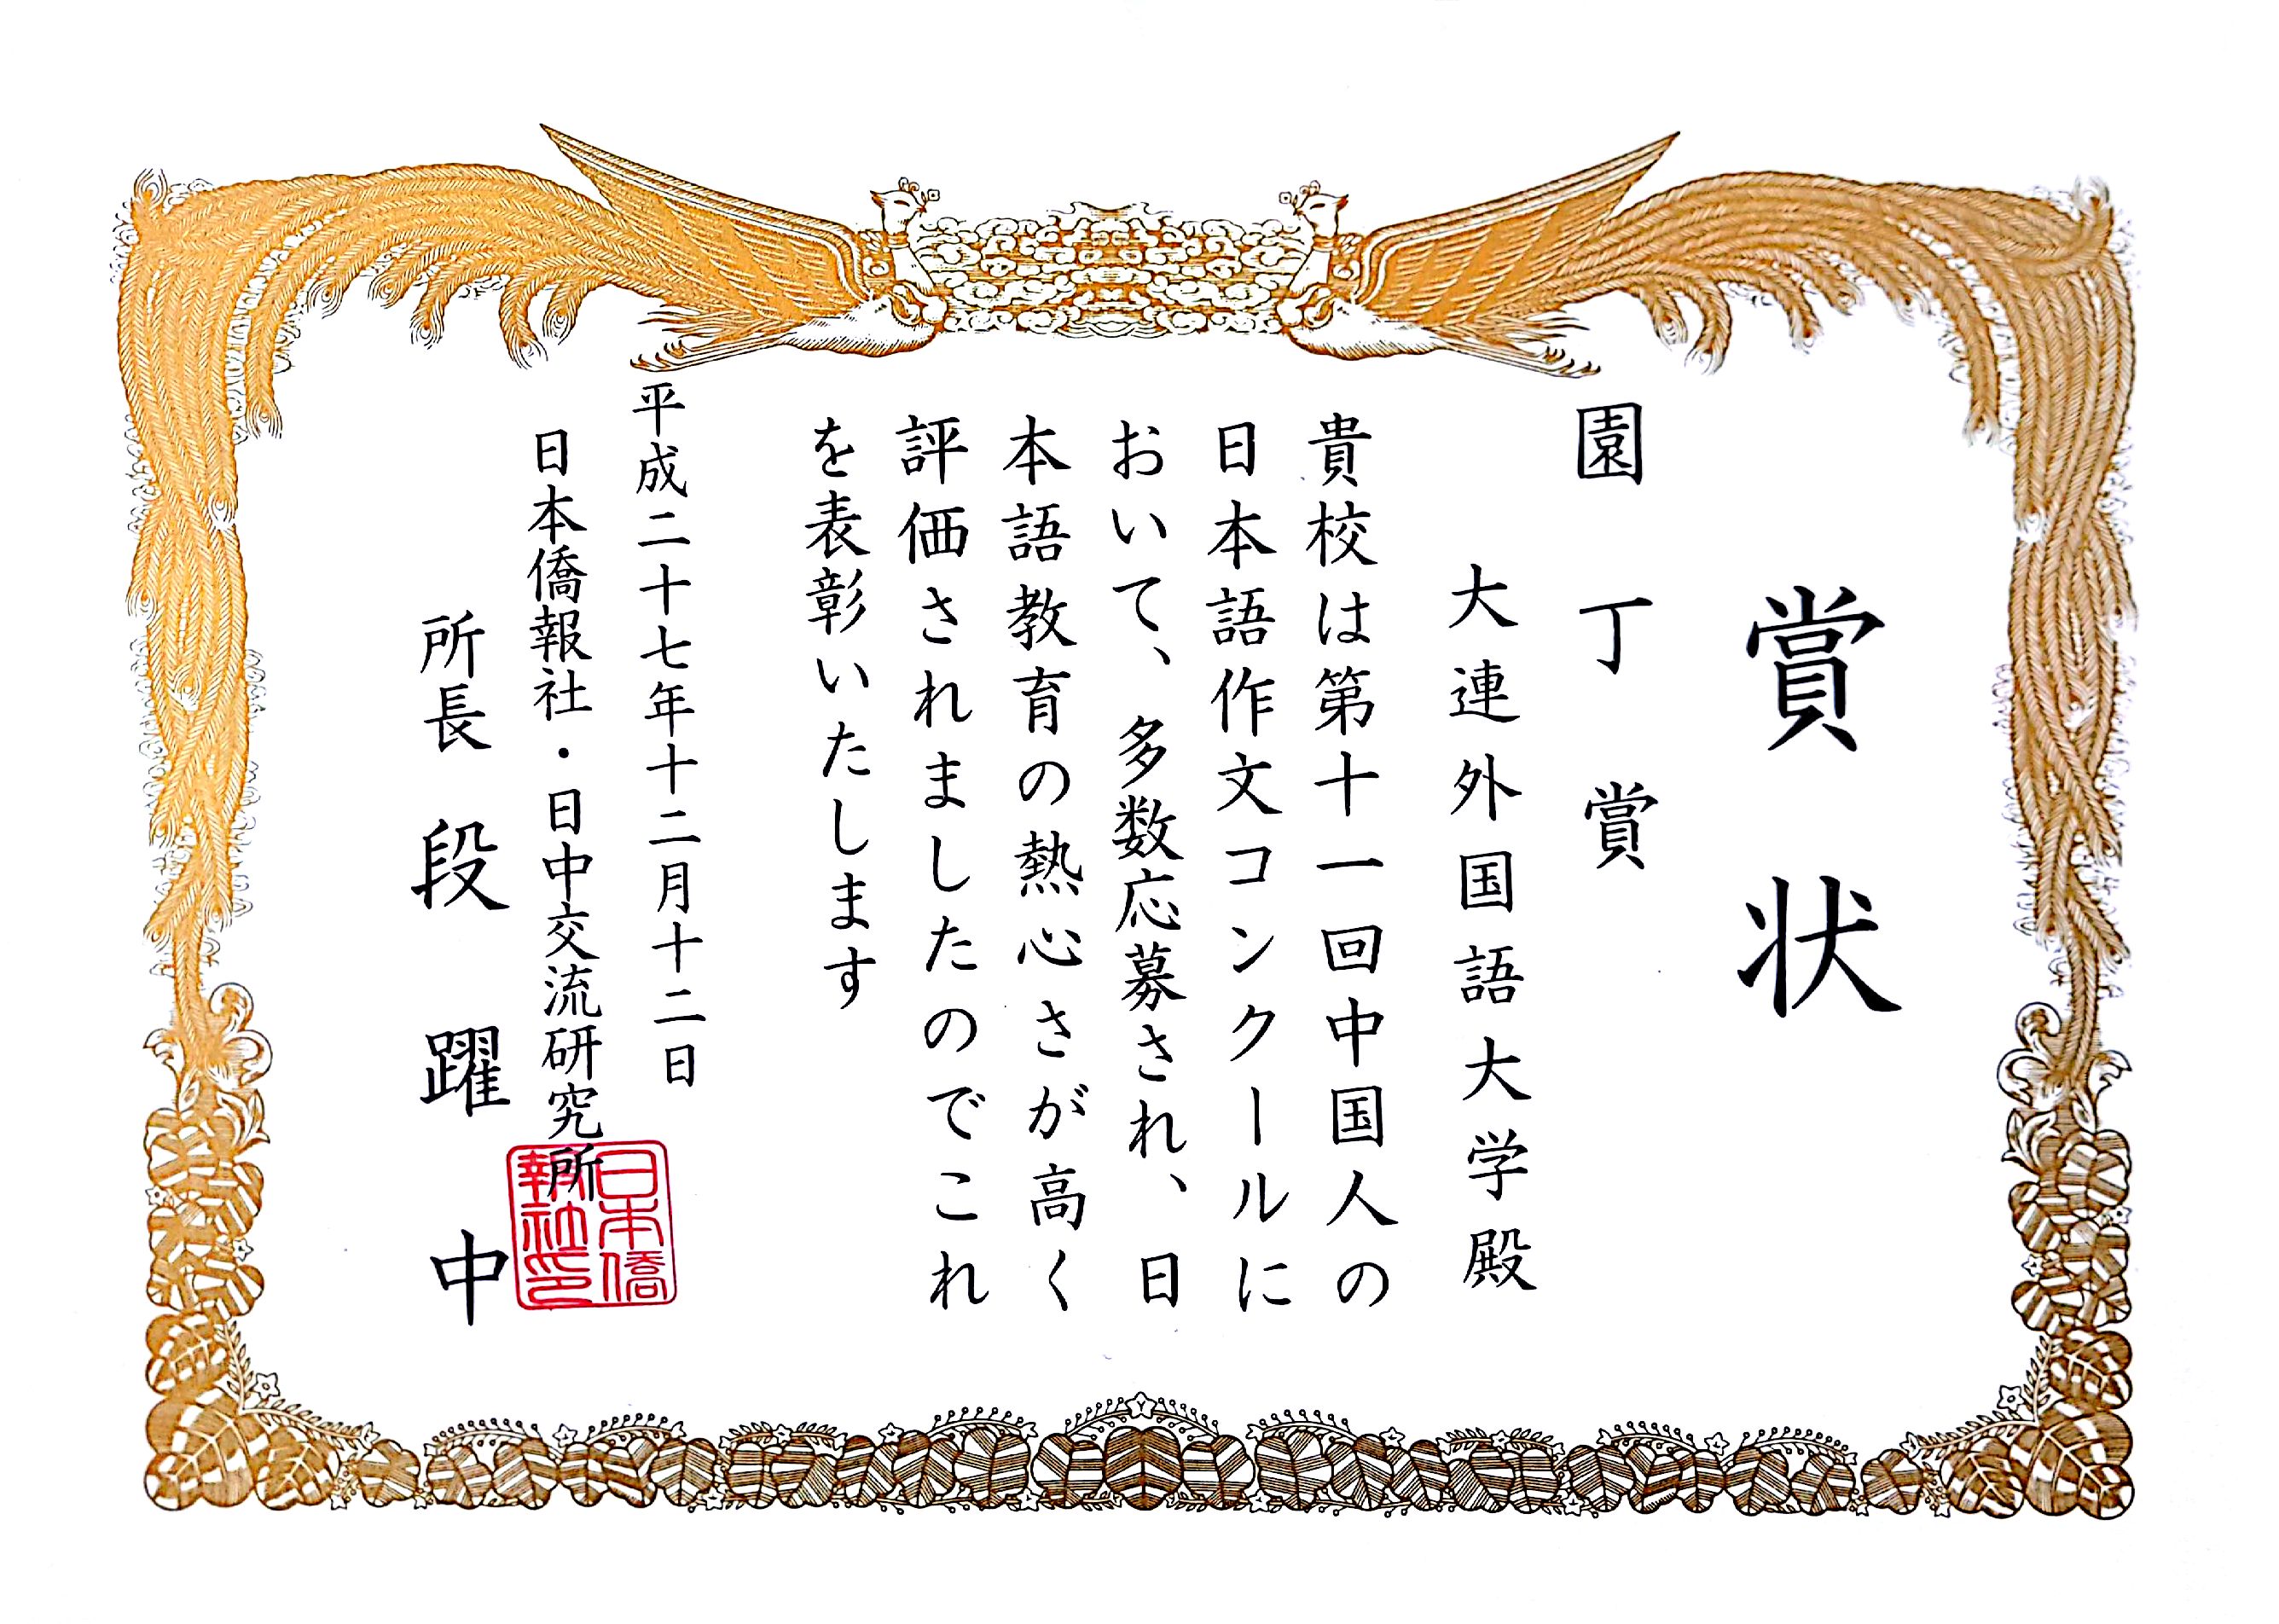 賞状
園丁賞
大連外国語大学殿
貴校は第十一回中国人の
日本語作文コンクールに
おいて、多数応募され、日
本語教育の熱心さが高く
評価されましたのでこれ
を表彰いたします
平成二十七年十二月十二日
日本僑報社・日中交流研究所
所長 段躍中
日本僑
報社印